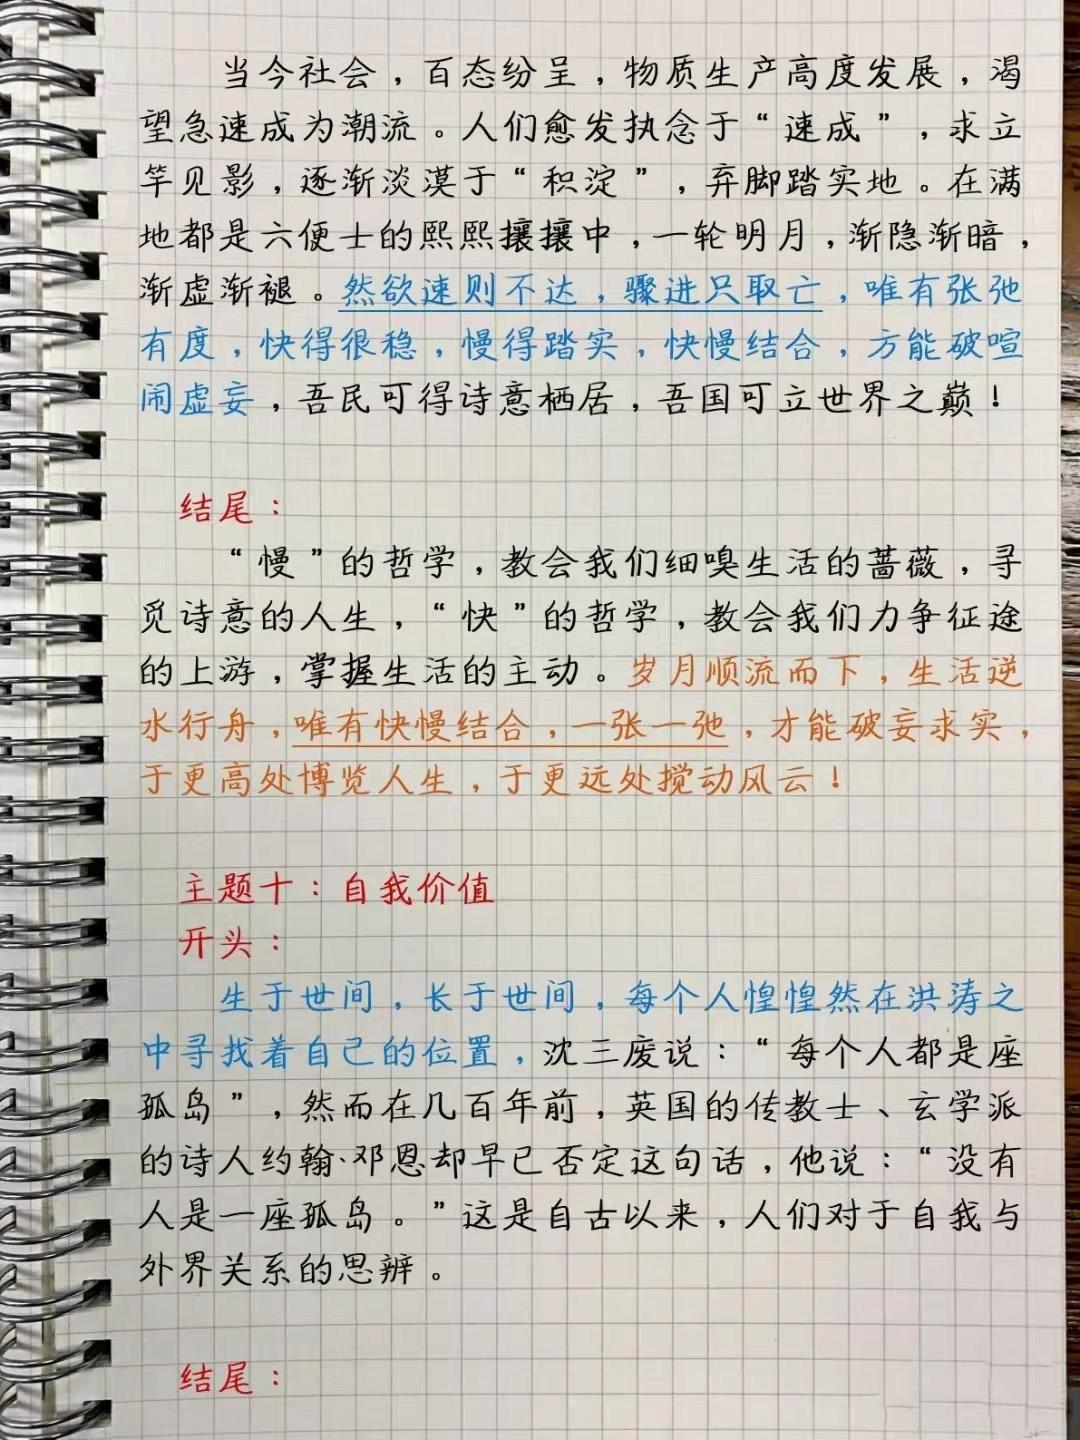 当今社会，百态纷呈，物质生产高度发展，渴
望急速成为潮流。人们愈发执念于“速成”，求立
竿见影，逐渐淡漠于“积淀”，弃脚踏实地。在满
地都是六便士的熙熙攘攘中，一轮明月，渐隐渐暗，
渐虚渐褪。然欲速则不达，骤进只取亡，唯有张弛
有度，快得很稳，慢得踏实，快慢结合，方能破喧
闹虚妄，吾民可得诗意栖居，吾国可立世界之巅！
结尾：
“慢”的哲学，教会我们细嗅生活的蔷薇，寻
觅诗意的人生，“快”的哲学，教会我们力争征途
的上游，掌握生活的主动。岁月顺流而下，生活逆
水行舟，唯有快慢结合，一张一弛，才能破妄求实，
于更高处博览人生，于更远处搅动风云！
主题十：自我价值
开头：
生于世间，长于世间，每个人惶惶然在洪涛之
中寻找着自己的位置，沈三废说：“每个人都是座
孤岛”，然而在几百年前，英国的传教士、玄学派
的诗人约翰·邓恩却早已否定这句话，他说：“没有
人是一座孤岛。”这是自古以来，人们对于自我与
外界关系的思辨。
结尾：